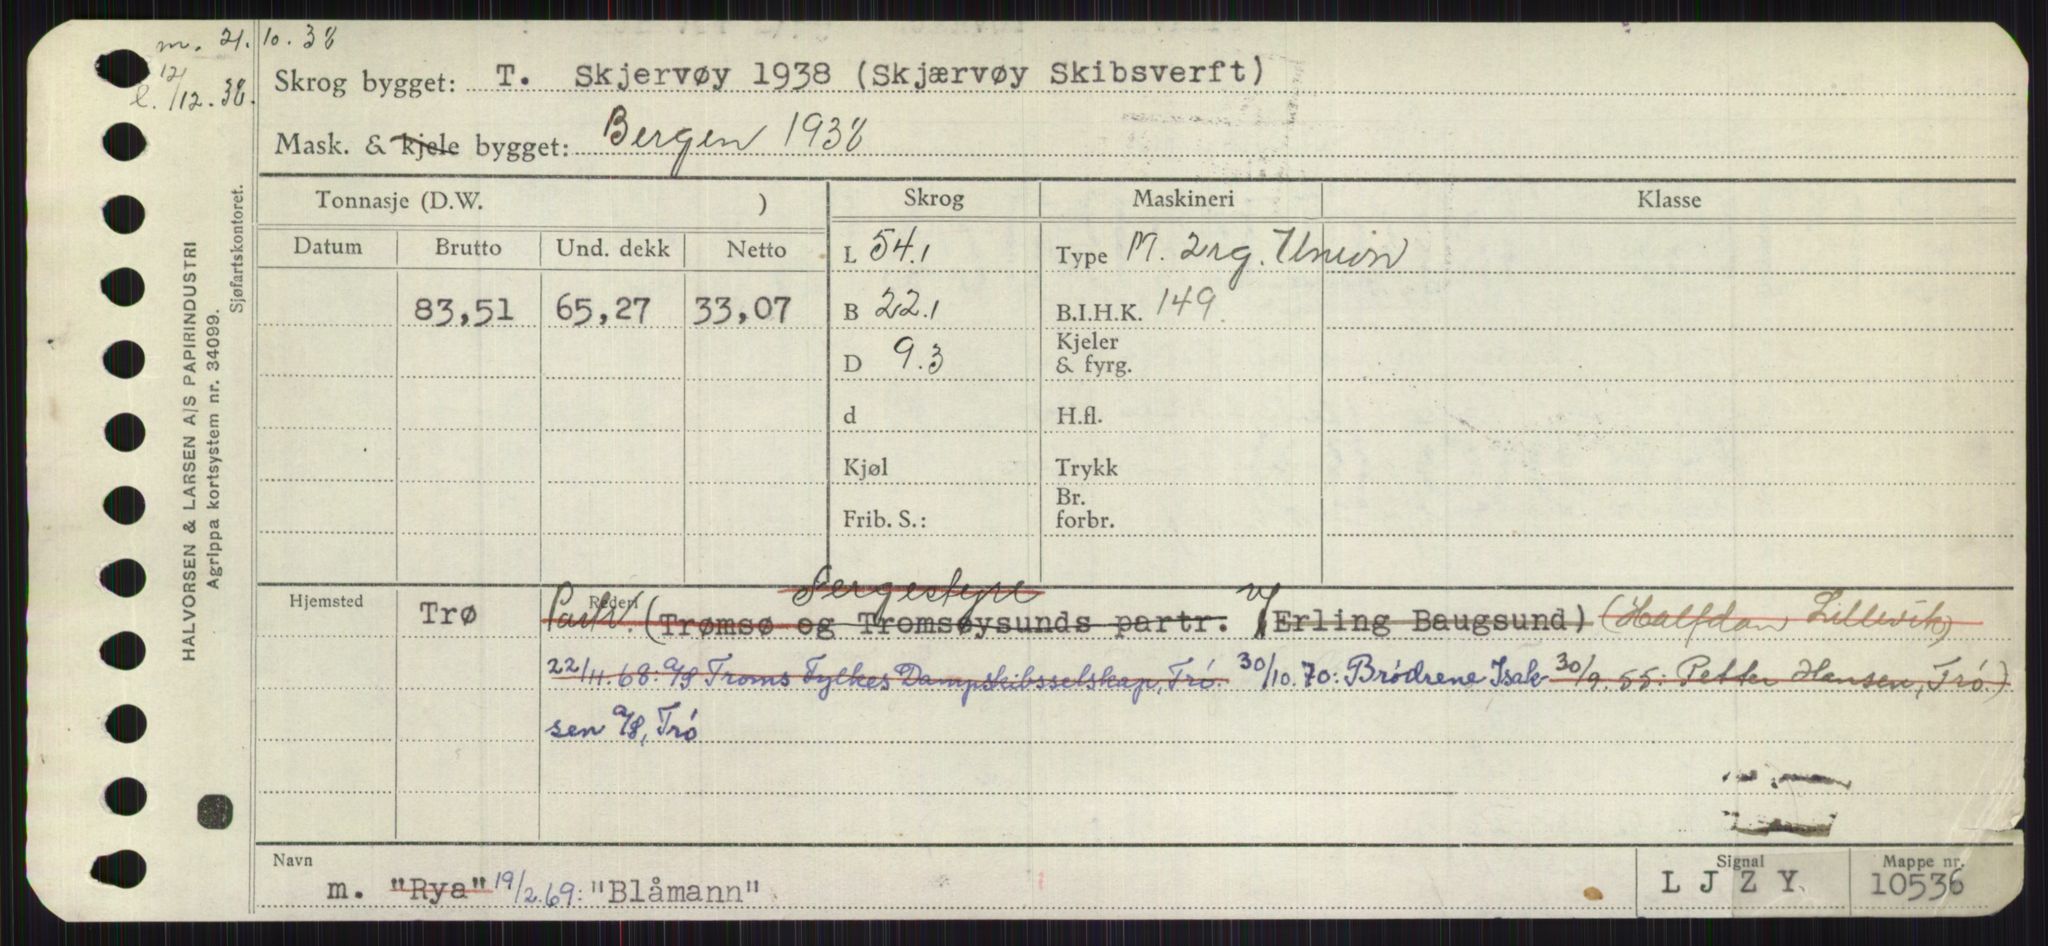 m. 21.10.38
l. 12/12.38.
Skrog bygget: T. Skjervøy 1938 (Skjærvøy Skibsverft)
Mask. & kjele bygget: Bergen 1938
Tonnasje (D.W. )
Skrog
Maskineri
Klasse
Datum
Brutto
Und. dekk
Netto
83,51
65,27
33,07
L 54.1
B 22.1
D 9.3
d
Kjøl
Frib. S.:
Type M. 2rg. Union
B.I.H.K. 149
Kjeler
& fyrg.
H.fl.
Trykk
Br.
forbr.
Hjemsted
Trø
Rederi
Partr. (Tromsø og Tromsøysunds partr. v/ Erling Baugsund) (Halfdan Lillevik)
22/11.68: A/S Troms Fylkes Dampskibsselskap, Trø. 30/10.70: Brødrene Isak- 30/9.55: Petter Hansen, Trø.)
sen A/S, Trø
Navn
m. "Rya" 19/2.69: "Blåmann"
Signal
L J Z Y
Mappe nr.
10536
HALVORSEN & LARSEN A/S PAPIRINDUSTRI
Agrippa kortsystem nr. 34099.
Sjøfartskontoret.